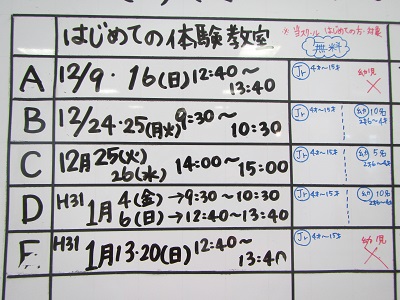 はじめての体験教室
※当スクールはじめての方・対象
無料
A 12/9・16(日) 12:40〜13:40
Jr 4才〜15才 幼児 ×
B 12/24・25(月火) 9:30〜10:30
Jr 4才〜15才 幼 10名
2才6〜4才
C 12月25(火)26(水) 14:00〜15:00
Jr 4才〜15才 幼 5名
2才6〜4才
D H31 1月4(金)→9:30〜10:30
6(日)→12:40〜13:40
Jr 4才〜15才 幼 10名
2才6〜4才
E H31 1月13・20(日) 12:40〜13:40
Jr 4才〜15才 幼児 ×